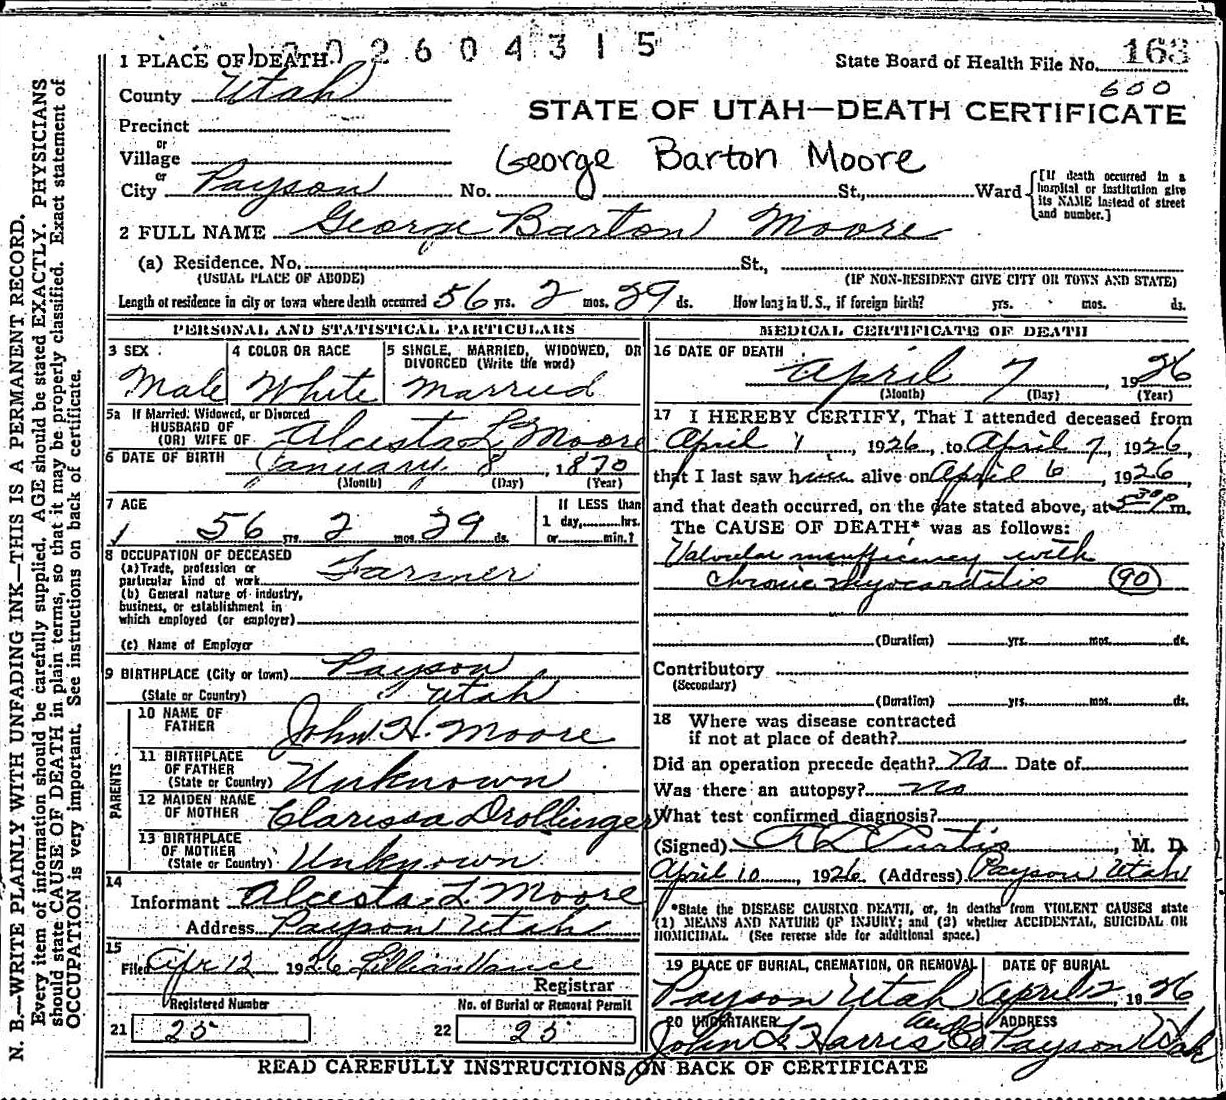 N. B.—WRITE PLAINLY WITH UNFADING INK—THIS IS A PERMANENT RECORD.
Every item of information should be carefully supplied. AGE should be stated EXACTLY. PHYSICIANS
should state CAUSE OF DEATH in plain terms, so that it may be properly classified. Exact statement of
OCCUPATION is very important. See instructions on back of certificate.
2604315
1 PLACE OF DEATH.
State Board of Health File No. 163
600
County Utah
STATE OF UTAH—DEATH CERTIFICATE
Precinct
or
Village
George Barton Moore
or
City Payson No. St., Ward
[If death occurred in a
hospital or institution give
its NAME instead of street
and number.]
2 FULL NAME George Barton Moore
(a) Residence. No. St.,
(USUAL PLACE OF ABODE) (IF NON-RESIDENT GIVE CITY OR TOWN AND STATE)
Length of residence in city or town where death occurred 56 yrs. 2 mos. 29 ds. How long in U. S., if foreign birth? yrs. mos. ds.
PERSONAL AND STATISTICAL PARTICULARS
3 SEX
Male
4 COLOR OR RACE
White
5 SINGLE, MARRIED, WIDOWED, OR
DIVORCED (Write the word)
Married
5a If Married, Widowed, or Divorced
HUSBAND OF
(OR) WIFE OF Alcesta L. Moore
6 DATE OF BIRTH January 8, 1870
(Month) (Day) (Year)
7 AGE
56 yrs. 2 mos. 29 ds.
If LESS than
1 day, hrs.
or min.?
8 OCCUPATION OF DECEASED
(a) Trade, profession or
particular kind of work Farmer
(b) General nature of industry,
business, or establishment in
which employed (or employer)
(c) Name of Employer
9 BIRTHPLACE (City or town) Payson
(State or Country) Utah
PARENTS
10 NAME OF
FATHER John H. Moore
11 BIRTHPLACE
OF FATHER
(State or Country) Unknown
12 MAIDEN NAME
OF MOTHER Clarissa Drollinger
13 BIRTHPLACE
OF MOTHER
(State or Country) Unknown
14
Informant Alcesta L. Moore
Address Payson Utah
15
Filed Apr 12 1926 Lillian Vance
Registrar
Registered Number
21 25
No. of Burial or Removal Permit
22 25
MEDICAL CERTIFICATE OF DEATH
16 DATE OF DEATH
April 7, 1926
(Month) (Day) (Year)
17 I HEREBY CERTIFY, That I attended deceased from
April 1, 1926, to April 7, 1926,
that I last saw him alive on April 6, 1926,
and that death occurred, on the date stated above, at 5 30 p m.
The CAUSE OF DEATH* was as follows:
Valvular insufficiency with
chronic myocarditis 90
(Duration) yrs. mos. ds.
Contributory
(Secondary)
(Duration) yrs. mos. ds.
18 Where was disease contracted
if not at place of death?
Did an operation precede death? No Date of
Was there an autopsy? No
What test confirmed diagnosis?
(Signed) Curtis, M. D.
April 10, 1926 (Address) Payson Utah
*State the DISEASE CAUSING DEATH, or, in deaths from VIOLENT CAUSES state
(1) MEANS AND NATURE OF INJURY; and (2) whether ACCIDENTAL, SUICIDAL OR
HOMICIDAL. (See reverse side for additional space.)
19 PLACE OF BURIAL, CREMATION, OR REMOVAL
Payson Utah
DATE OF BURIAL
1926
20 UNDERTAKER
John L. Harris and Co
ADDRESS
Payson Utah
READ CAREFULLY INSTRUCTIONS ON BACK OF CERTIFICATE